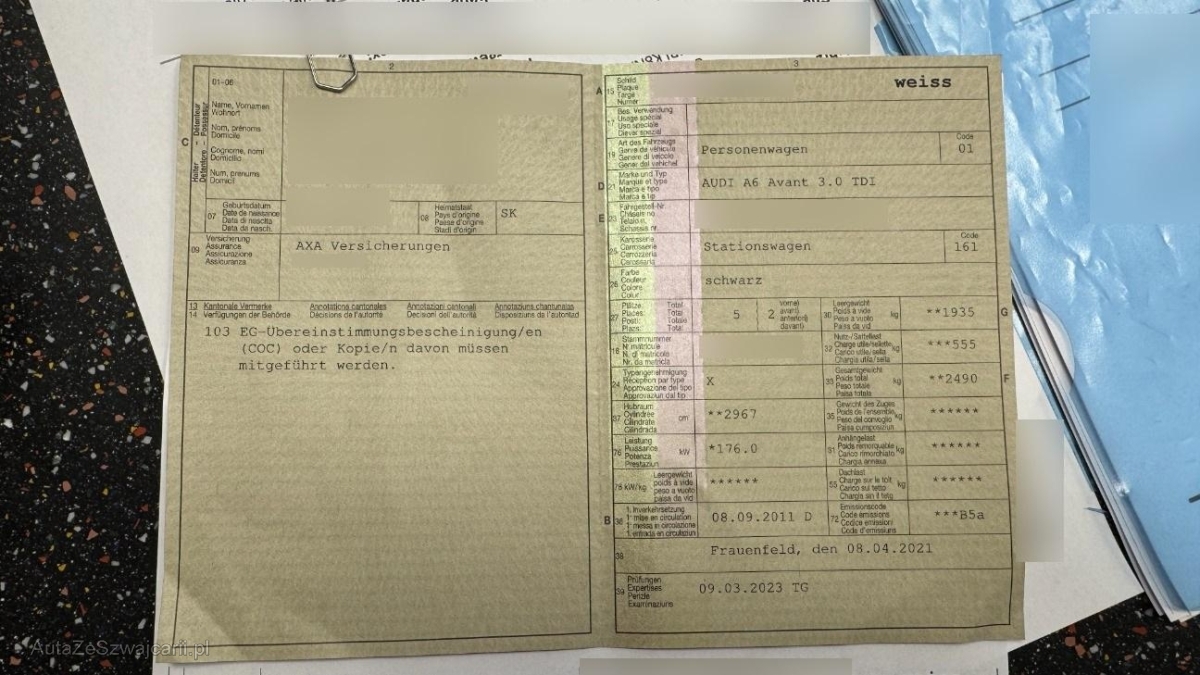 2
01-06
C
Halter - Detenteur
Detentore - Possessur
Name, Vornamen
Wohnort
Nom, prénoms
Domicile
Cognome, nomi
Domicilio
Num, prenums
Domicil
07
Geburtsdatum
Date de naissance
Data di nascita
Data da nasch.
08
Heimatstaat
Pays d'origine
Paese d'origine
Stadi d'origin
SK
09
Versicherung
Assurance
Assicurazione
Assicuranza
AXA Versicherungen
13 Kantonale Vermerke Annotations cantonales Annotazioni cantonali Annotaziuns chantunalas
14 Verfügungen der Behörde Décisions de l'autorité Decisioni dell'autorità Disposiziuns da l'autoritad
103 EG-Übereinstimmungsbescheinigung/en
(COC) oder Kopie/n davon müssen
mitgeführt werden.
3
A 15
Schild
Plaque
Targa
Numer
weiss
17
Bes. Verwendung
Usage spécial
Uso speciale
Diever spezial
19
Art des Fahrzeugs
Genre de véhicule
Genere di veicolo
Gener dal vehichel
Personenwagen
Code
01
D 21
Marke und Typ
Marque et type
Marca e tipo
Marca e tip
AUDI A6 Avant 3.0 TDI
E 23
Fahrgestell-Nr.
Châssis no
Telaio n.
Schassis nr.
25
Karosserie
Carrosserie
Carrozzeria
Carossaria
Stationswagen
Code
161
26
Farbe
Couleur
Colore
Colur
schwarz
27
Plätze: Total
Places: Total
Posti: Totale
Plazs: Total
5
2
vorne)
avant)
anteriori)
davant)
30
Leergewicht
Poids à vide
Peso a vuoto
Paisa da vid
kg
**1935
G
18
Stammnummer
N. matricule
N. di matricola
Nr. da matricla
32
Nutz-/Sattellast
Charge utile/sellette
Carico utile/sella
Chargia utila/sella
kg
***555
24
Typengenehmigung
Réception par type
Approvazione del tipo
Approvaziun dal tip
X
33
Gesamtgewicht
Poids total
Peso totale
Paisa totala
kg
**2490
F
37
Hubraum
Cylindrée
Cilindrata
Cilindrada
cm³
**2967
35
Gewicht des Zuges
Poids de l'ensemble
Peso del convoglio
Paisa cumposiziun
kg
******
76
Leistung
Puissance
Potenza
Prestaziun
kW
*176.0
31
Anhängelast
Poids remorquable
Carico rimorchiato
Chargia annexa
kg
******
78 kW/kg
Leergewicht
poids à vide
peso a vuoto
paisa da vid
******
55
Dachlast
Charge sur le toit
Carico sul tetto
Chargia sin il tetg
kg
******
B 36
1. Inverkehrsetzung
1re mise en circulation
1a messa in circolazione
1. entrada en circulaziun
08.09.2011 D
72
Emissionscode
Code émissions
Codice emissioni
Code d'emissiuns
***B5a
38
Frauenfeld, den 08.04.2021
39
Prüfungen
Expertises
Perizie
Examinaziuns
09.03.2023 TG
AutaZeSzwajcarii.pl